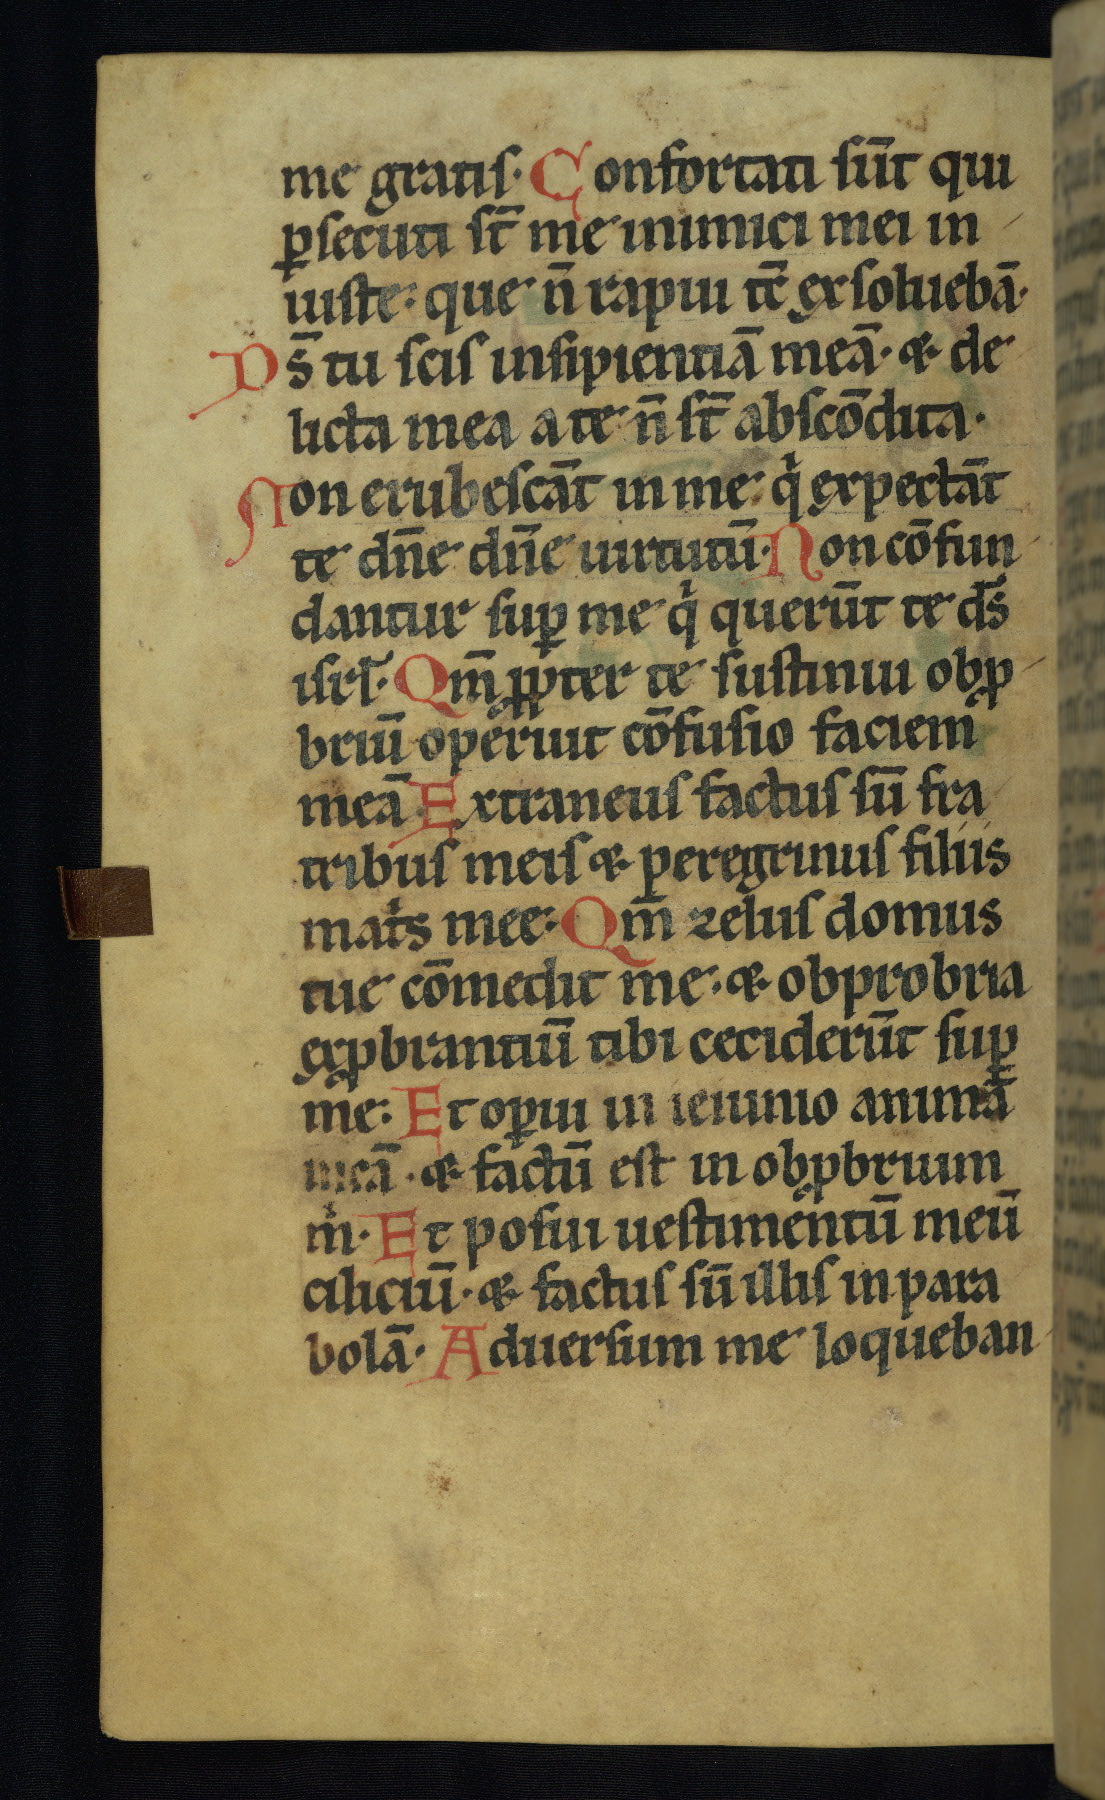 me gratiſ· Confortati ſūt qui
ꝑſecuti ſt̄ me inimici mei in
iuſte: que n̄ rapui tc̄ exſoluebā·
Ds̄ tu ſcis inſipientiā meā· & de
licta mea a te n̄ ſt̄ abſcōdita·
Non erubeſcāt in me qͥ expectāt
te dn̄e dn̄e uirtutū· Non cōfun
dantur ſuꝑ me qͥ querūt te ds̄
iſrl̄· Qm̄ ꝓpter te ſuſtinui obꝓ
briū operuit cōfuſio faciem
meā· Extraneuſ factuſ ſū fra
tribuſ meiſ & peregrinuſ filiis
matͥs mee: Qm̄ zeluſ domus
tue cōmedit me· & obprobria
exꝓbrantiū tibi ceciderūt ſuꝑ
me: Et oꝑui in ieiunio animā
meā· & factū eſt in obꝓbrium
mͥ· Et poſui ueſtimentū meū
ciliciū· & factuſ ſū illiſ in para
bolā· Aduerſum me loqueban